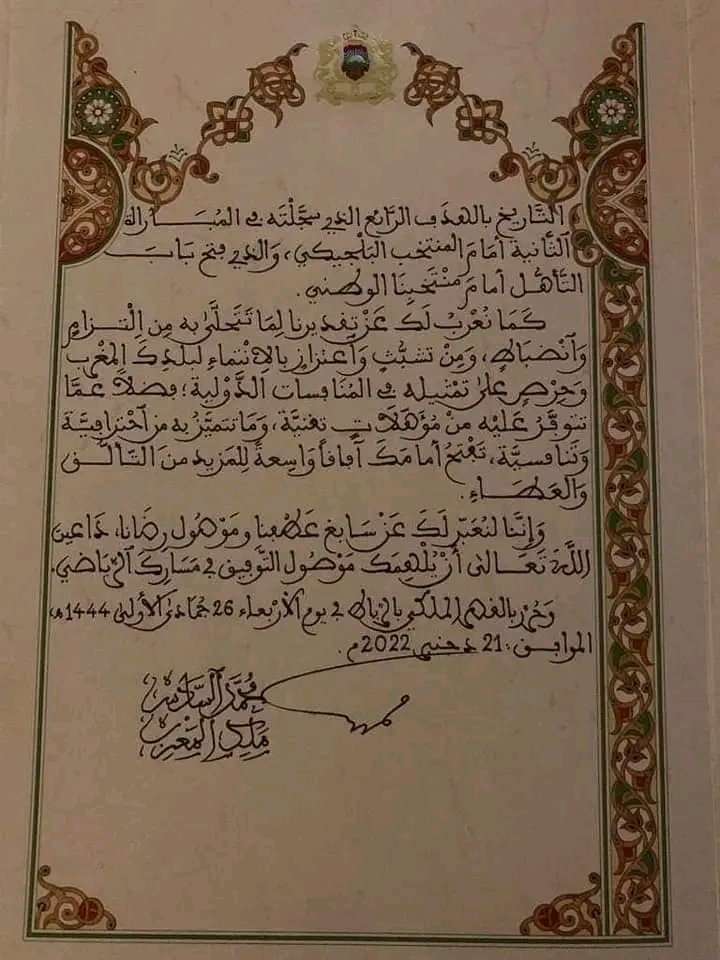 التَّاريخ بالهدف الرَّائع الذي سجَّلْتَه في المُبَاراة
الثَّانية أمَامَ المنتخب البَلْجيكي، وَالذي فتح بَابَ
التَّأهُّل أمامَ مُنْتَخبِنَا الوطني.
كَمَا نُعْرِبُ لكَ عَنْ تقديرنا لِمَا تَتَحلَّى به مِن الْتزام
وَانْضباط، وَمِنْ تشبُّثٍ وَاعْتزازٍ بالانْتماء لبلدكَ المغرب
وَحِرْصٍ عَلَى تمْثيله في المُنَافسات الدَّوْلية؛ فضلاً عَمَّا
تتوفَّرُ عَلَيْه منْ مُؤَهِّلَاتٍ تقنيَّة، وَمَا تتميَّزُ به من احْترافيَّة
وَتَنَافسيَّة، تَفْتَحُ أمامَكَ آفاقاً وَاسعةً للمَزيد منَ التَّألُّق
وَالعَطَاء.
وَإنَّنا لنُعَبِّرُ لكَ عَنْ سَابغ عَطْفنا وَمَوْصُول رضَانا، دَاعين
اللَّهَ تَعَالَى أنْ يُلْهمَكَ مَوْصُول التَّوْفيق في مَسَاركَ الرِّيَاضي.
وَحُرِّر بالقصر الملكي بالرباط في يوم الأربعاء 26 جُمَادَى الأولى 1444هـ
الموافق: 21 دجنبر 2022م.
مُحمَّد السَّادس
مَلِك المَغْرِب